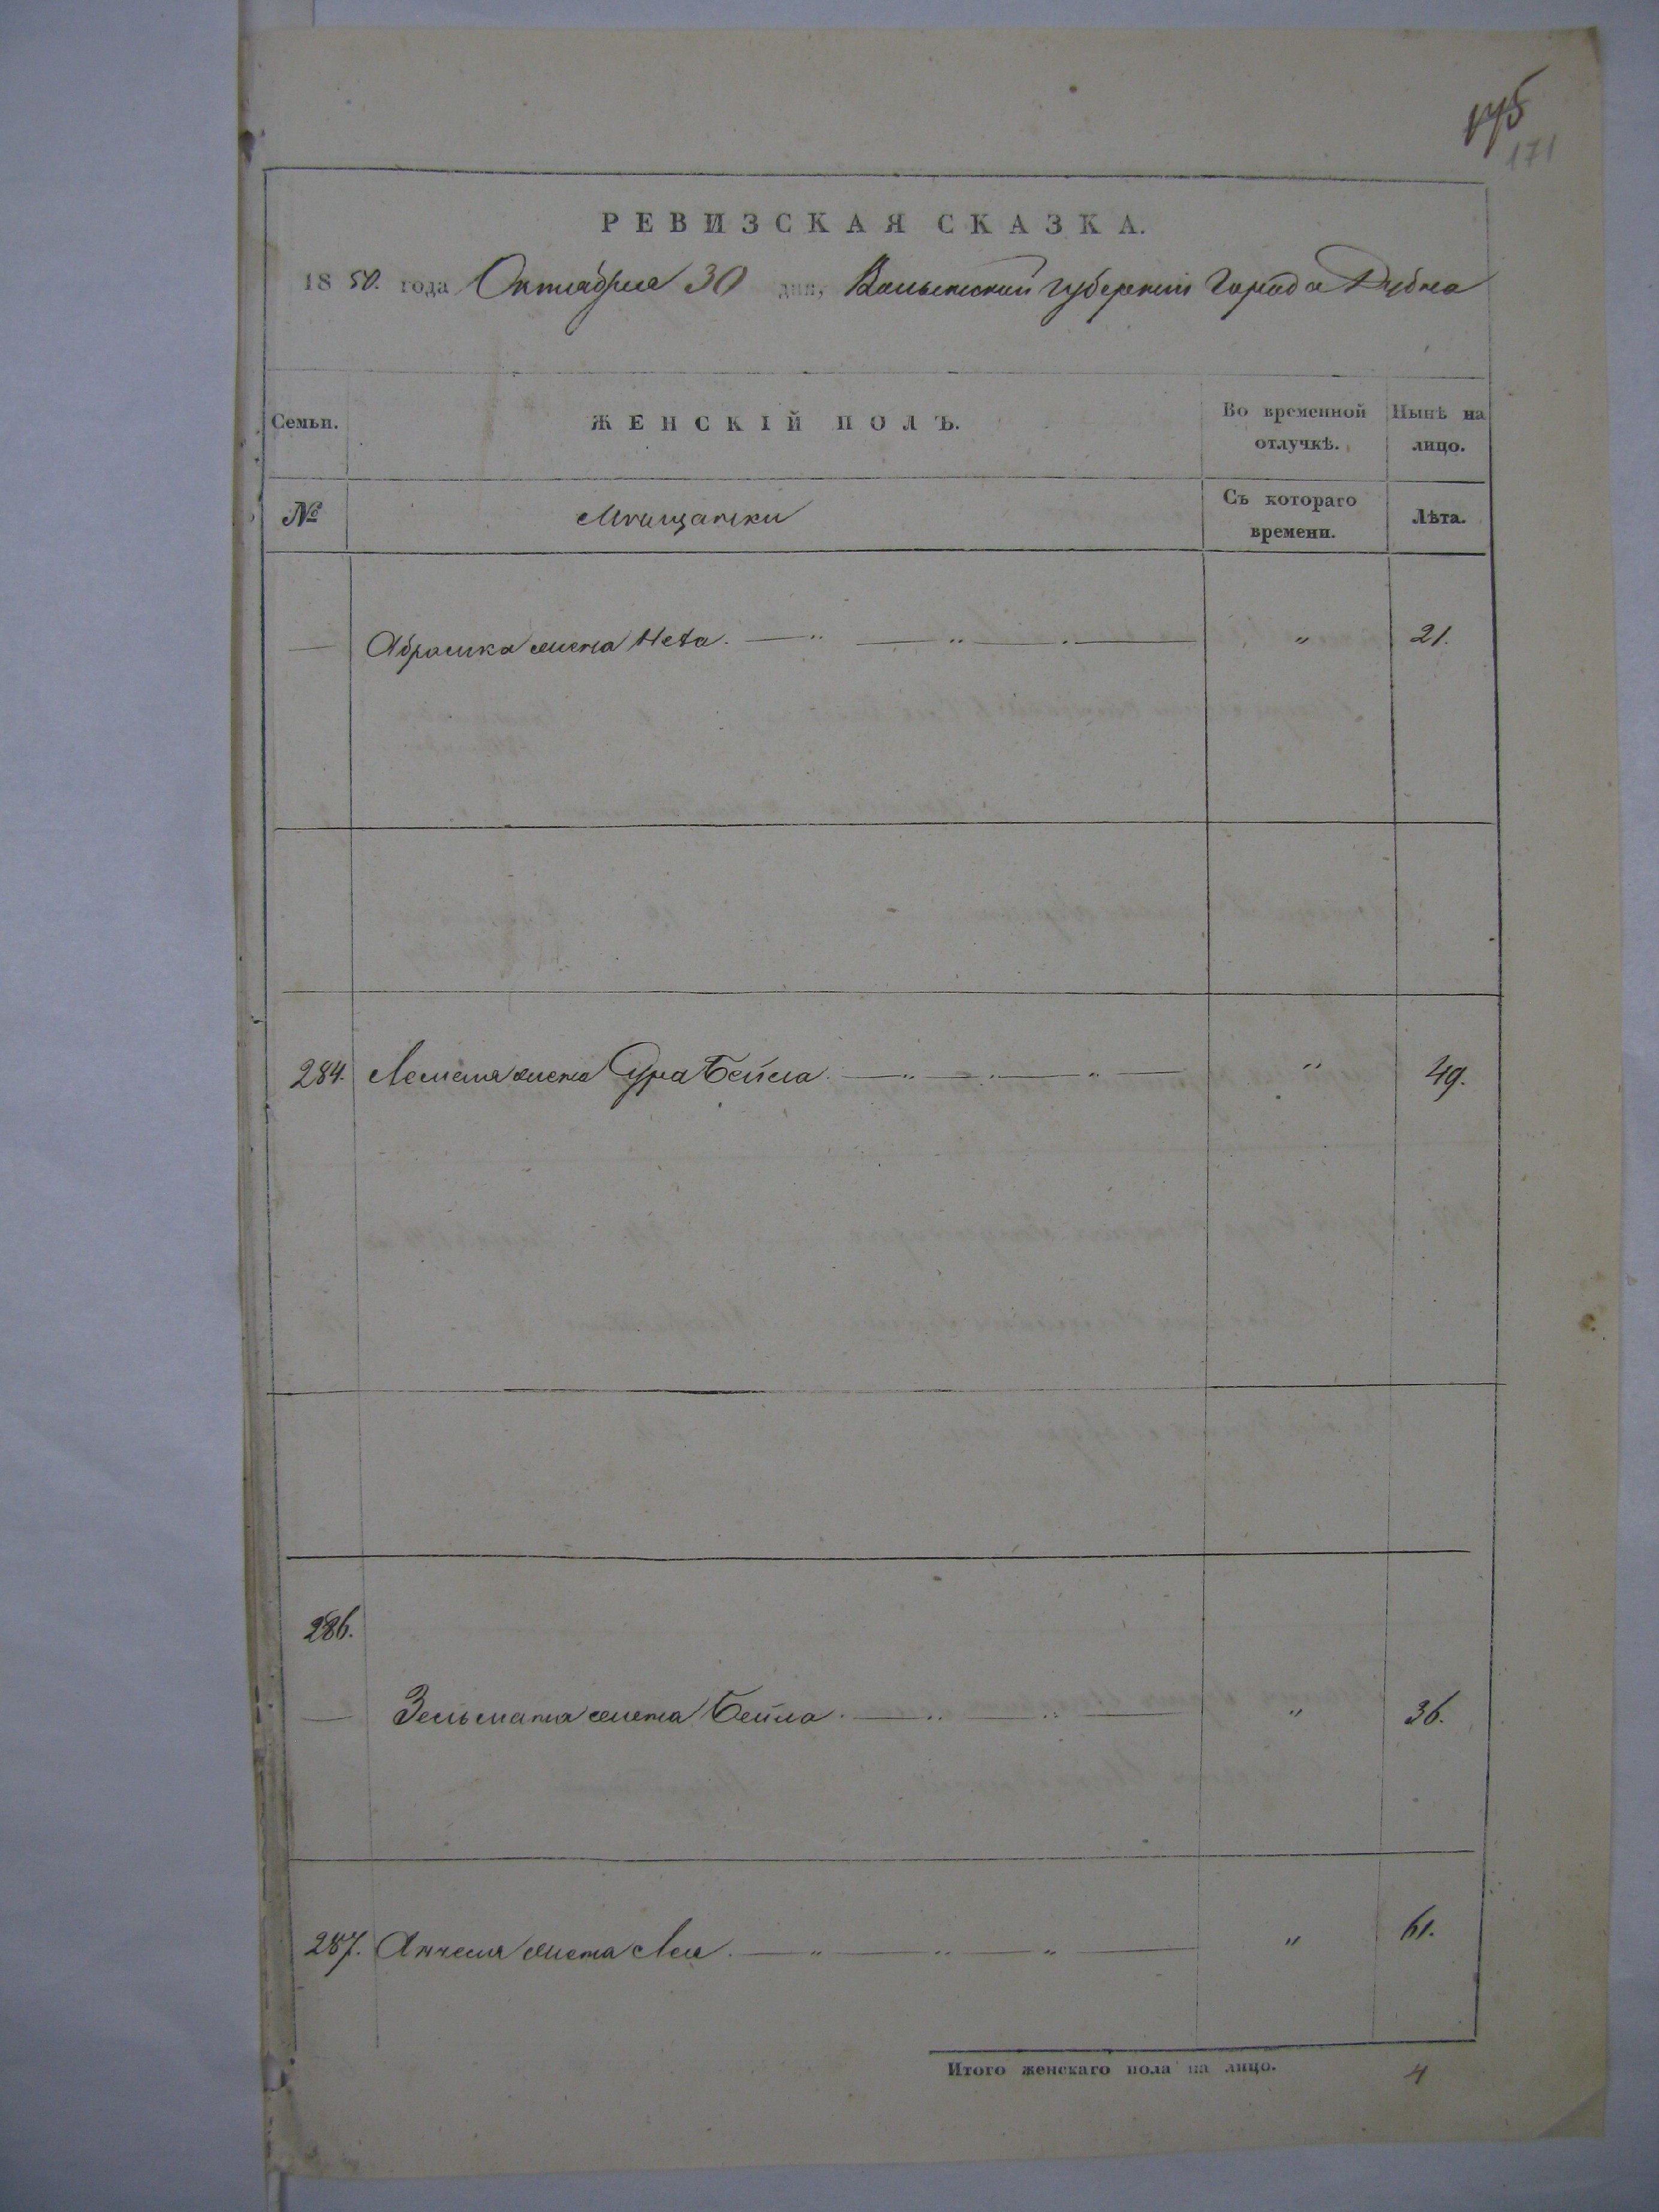 175
171
РЕВИЗСКАЯ СКАЗКА.
1850. года Октября 30 дня, Волынской губернии Города Дубна
Семьи. ЖЕНСКІЙ ПОЛЪ. Во временной отлучкѣ. Нынѣ на лицо.
№ Мѣщанки Съ котораго времени. Лѣта.
— Абрамка жена Нета. — „ — „ — „ — „ 21.
284. жена Сура Бейла. — „ — „ — „ — „ 49.
286.
— Зельмана жена Бейла. — „ — „ — „ 36.
287. Анчеля жена Лея. — „ — „ — „ — „ 61.
Итого женскаго пола на лицо. 4